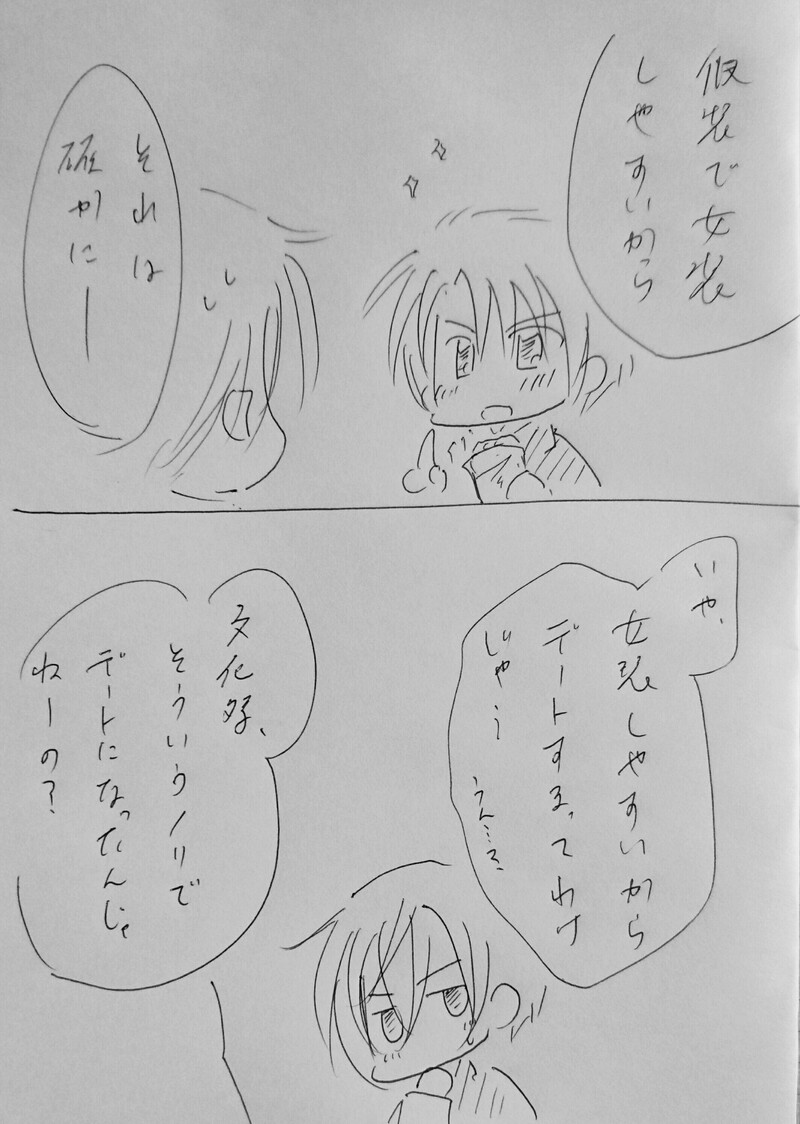 仮装で女装
しやすいから
それは
確かにー
いや、
女装しやすいから
デートするってわけ
じゃう
うん…?
文化祭、
そういうノリで
デートになったんじゃ
ねーの?